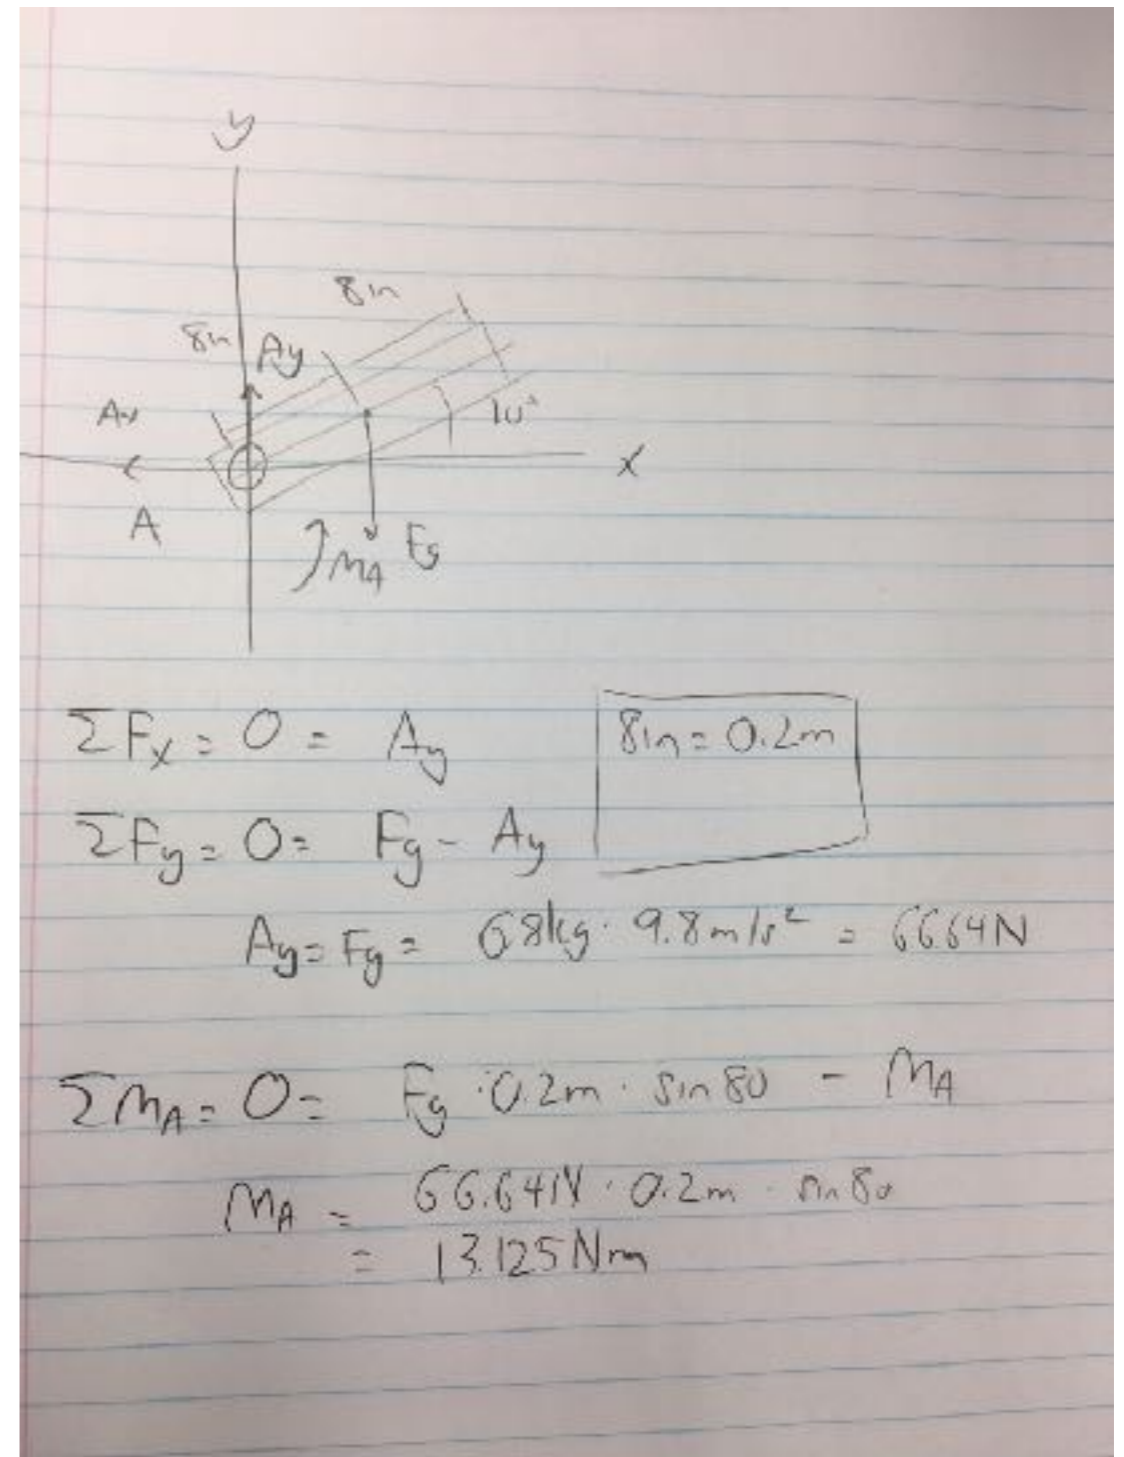 y
8in
8in Ay
Ax
10°
x
A
MA Fg
ΣFx = 0 = Ay
8in = 0.2m
ΣFy = 0 = Fg - Ay
Ay = Fg = 6.8kg · 9.8m/s² = 66.64N
ΣMA = 0 = Fg · 0.2m · sin 80 - MA
MA = 66.64N · 0.2m · sin 80
= 13.125Nm